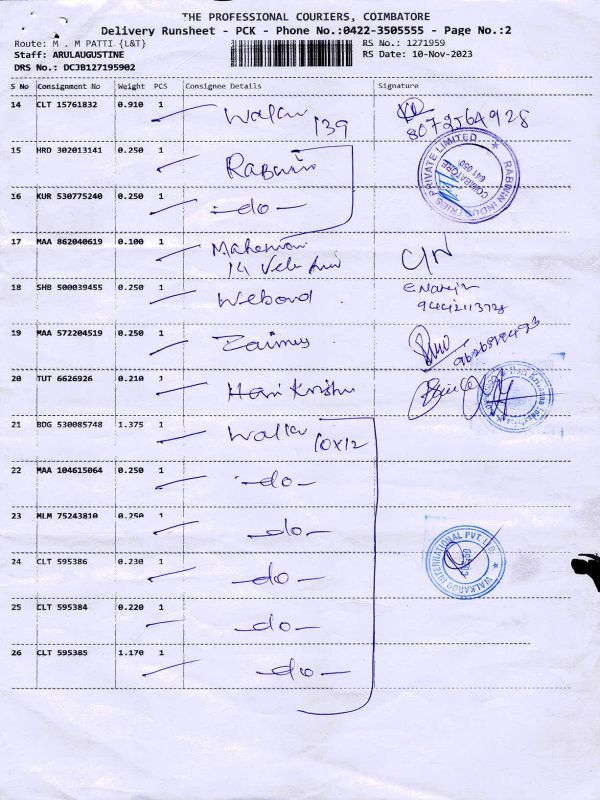 THE PROFESSIONAL COURIERS, COIMBATORE
Delivery Runsheet - PCK - Phone No.:0422-3505555 - Page No.:2
Route: M . M PATTI {L&T}
RS No.: 1271959
Staff: ARULAUGUSTINE
RS Date: 10-Nov-2023
DRS No.: DCJB127195902
S No Consignment No Weight PCS Consignee Details Signature
14 CLT 15761832 0.910 1
139
15 HRD 302013141 0.250 1
RABWIN INDUSTRIES PRIVATE LIMITED
COIMBATORE
641 050
16 KUR 530775240 0.250 1 -do-
17 MAA 862040619 0.100 1
14
18 SHB 500039455 0.250 1 Webond
19 MAA 572204519 0.250 1
20 TUT 6626926 0.210 1 Hari Krishna
21 BDG 530085748 1.375 1
10x12
22 MAA 104615064 0.250 1 -do-
23 MLM 75243810 0.250 1 -do-
24 CLT 595386 0.230 1 -do-
WALKAROO INTERNATIONAL PVT. LTD.
25 CLT 595384 0.220 1 -do-
26 CLT 595385 1.170 1 -do-